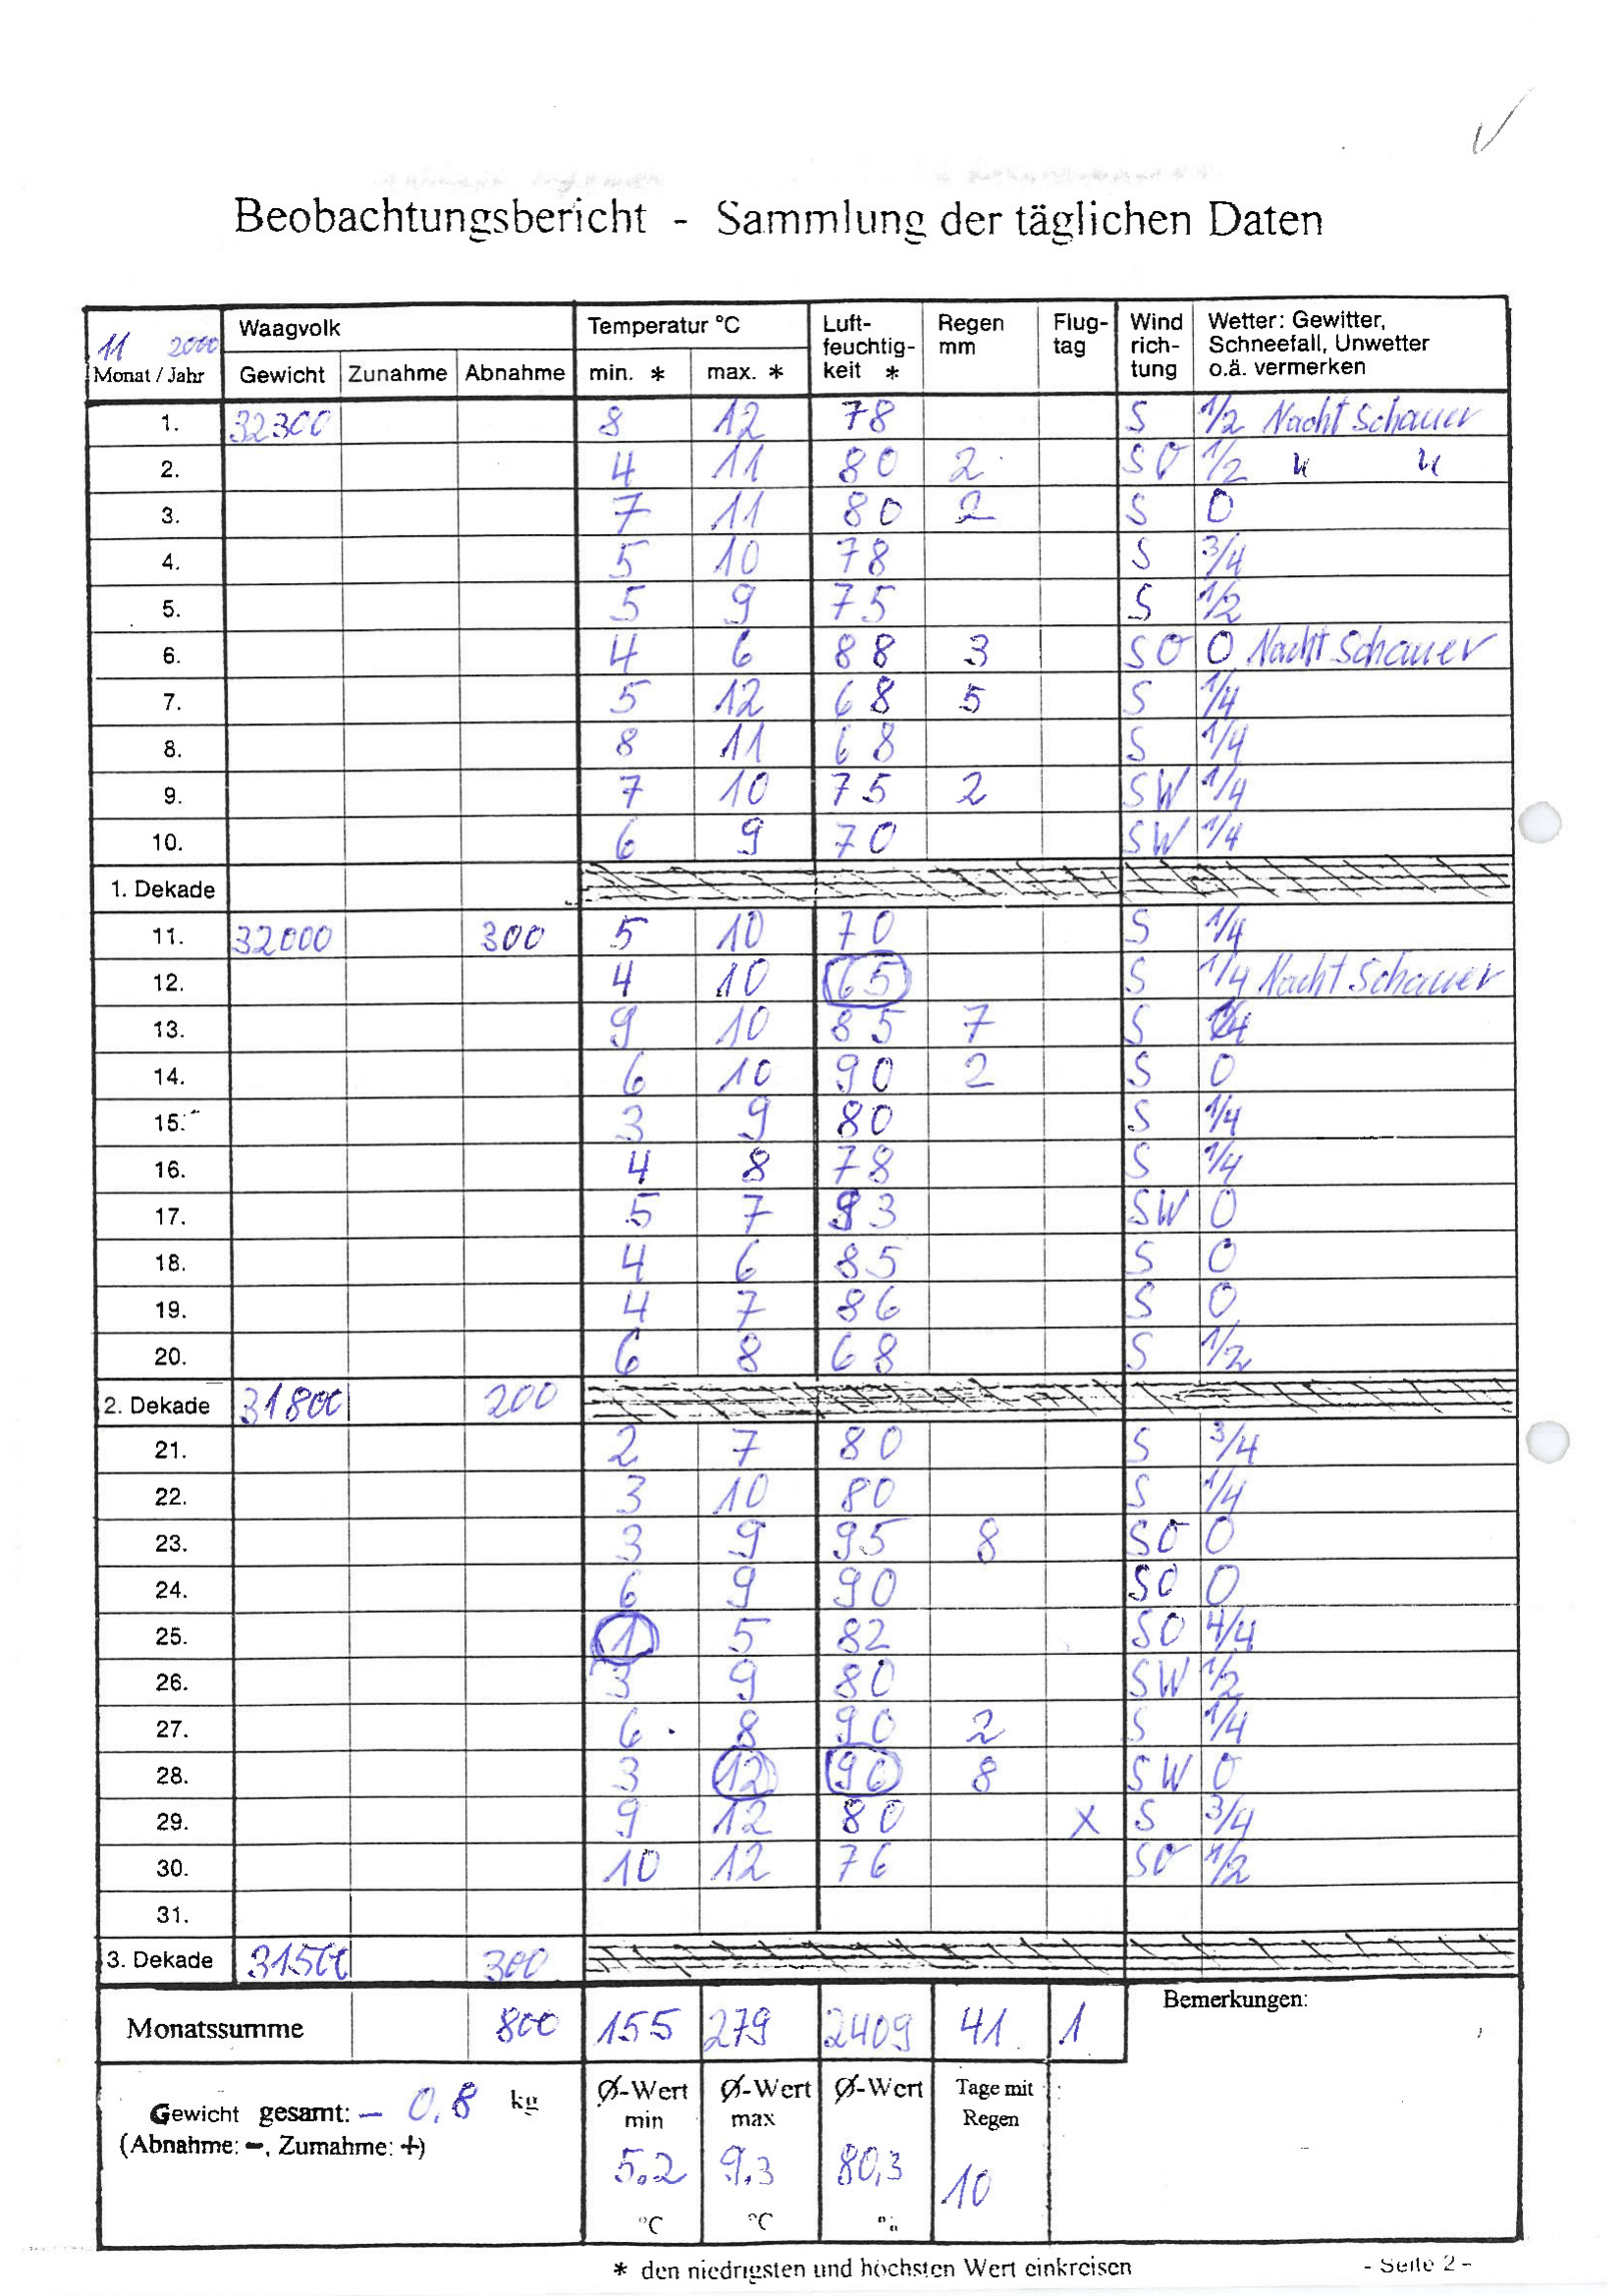 Beobachtungsbericht - Sammlung der täglichen Daten
11 2000 Monat / Jahr Waagvolk Temperatur °C Luft-feuchtig-keit * Regen mm Flug-tag Wind rich-tung Wetter: Gewitter, Schneefall, Unwetter o.ä. vermerken
Gewicht Zunahme Abnahme min. * max. *
1. 32300 8 12 78 S 1/2 Nacht Schauer
2. 4 11 80 2 SO 1/2 " "
3. 7 11 80 2 S 0
4. 5 10 78 S 3/4
5. 5 9 75 S 1/2
6. 4 6 88 3 SO 0 Nacht Schauer
7. 5 12 68 5 S 1/4
8. 8 11 68 S 1/4
9. 7 10 75 2 SW 1/4
10. 6 9 70 SW 1/4
1. Dekade
11. 32000 300 5 10 70 S 1/4
12. 4 10 65 S 1/4 Nacht Schauer
13. 9 10 85 7 S 1/4
14. 6 10 90 2 S 0
15. 3 9 80 S 1/4
16. 4 8 78 S 1/4
17. 5 7 93 SW 0
18. 4 6 85 S 0
19. 4 7 86 S 0
20. 6 8 68 S 1/2
2. Dekade 31800 200
21. 2 7 80 S 3/4
22. 3 10 80 S 1/4
23. 3 9 95 8 SO 0
24. 6 9 90 SO 0
25. 1 5 82 SO 4/4
26. 3 9 80 SW 1/2
27. 6 8 90 2 S 1/4
28. 3 12 96 8 SW 0
29. 9 12 80 X S 3/4
30. 10 12 76 SO 1/2
31.
3. Dekade 31500 300
Monatssumme 800 155 279 2409 41 1 Bemerkungen:
Gewicht gesamt: - 0,8 kg
(Abnahme: -, Zumahme: +)
Ø-Wert min Ø-Wert max Ø-Wert Tage mit Regen
5.2 9.3 80,3 10
°C °C %
* den niedrigsten und höchsten Wert einkreisen
- Seite 2 -